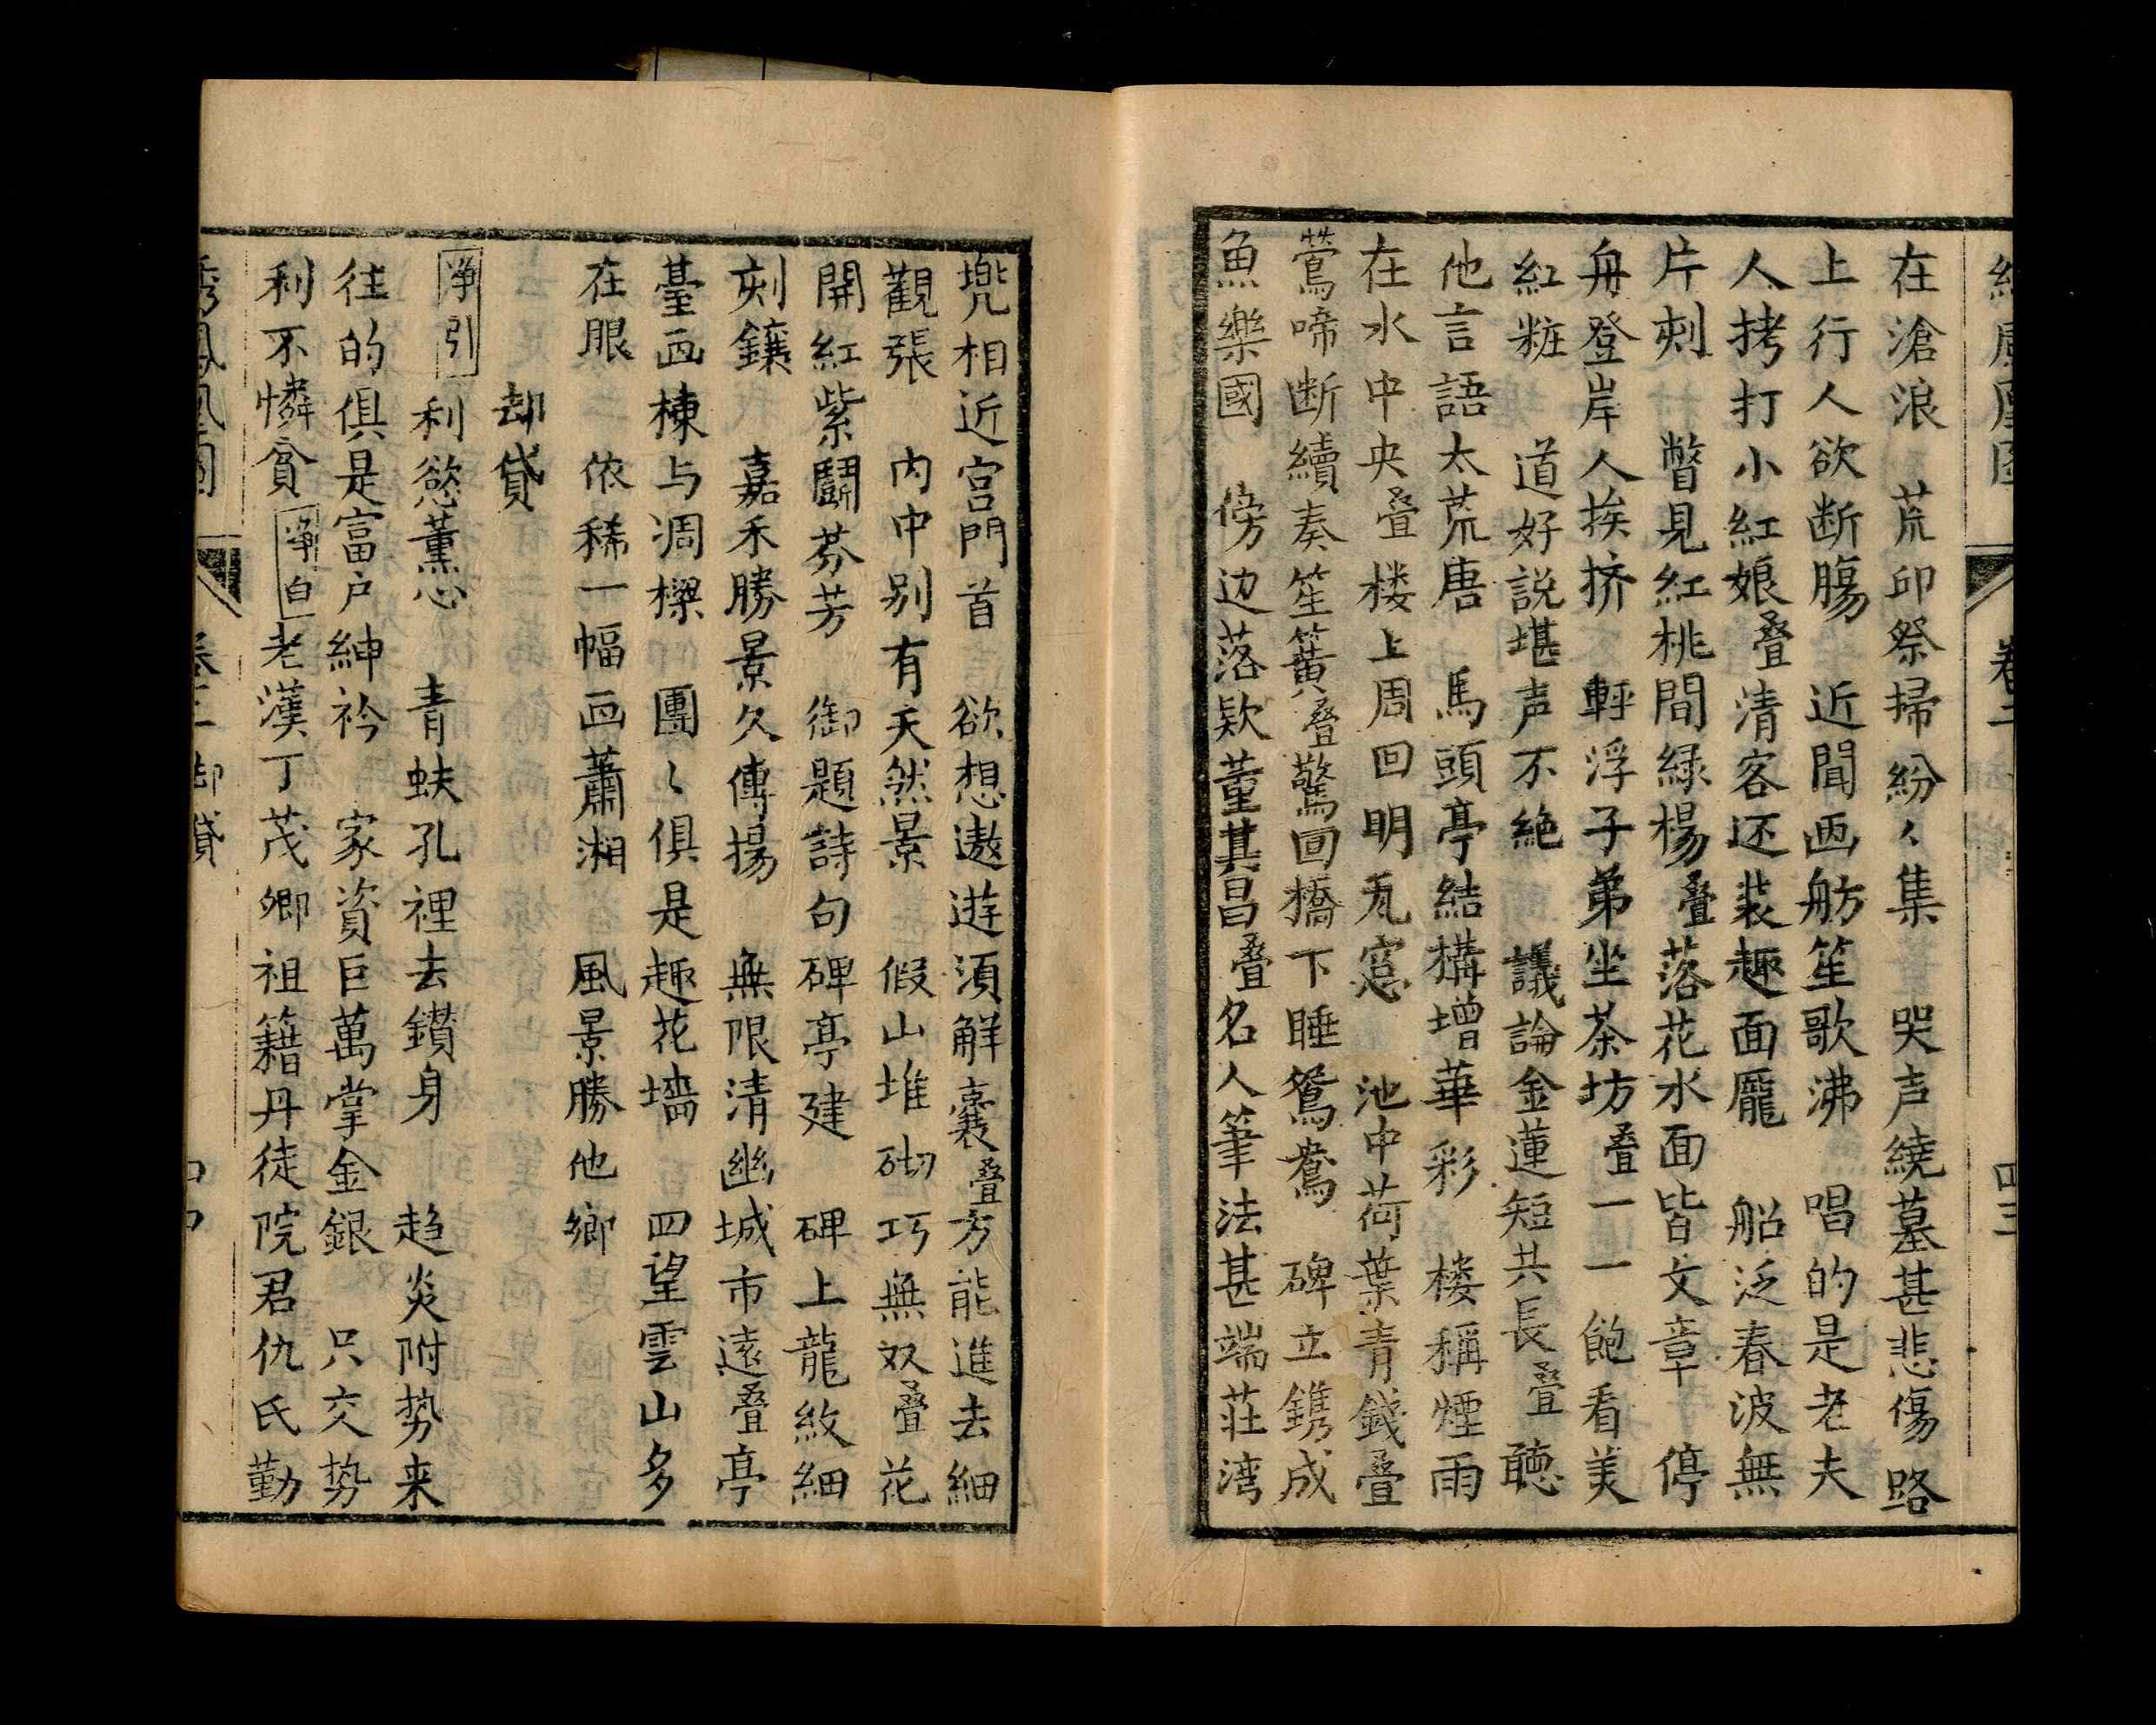 在滄浪　荒邱祭掃紛〻集　哭声繞墓甚悲傷路
上行人欲断膓　近聞画舫笙歌沸　唱的是老夫
人拷打小紅娘叠清客还装趣面龎　船泛春波無
片刻　瞥見紅桃間緑楊叠落花水面皆文章　停
舟登岸人挨挤　輕浮子弟坐茶坊叠一一飽看美
紅粧　道好説堪声不絶　議論金蓮短共長叠聽
他言語太荒唐　馬頭亭結構增華彩　楼稱煙雨
在水中央叠楼上周回明瓦窓　池中荷葉青錢叠
鶯啼断續奏笙簧叠驚回橋下睡鴛鴦　碑立鐫成
魚樂國　傍边落欵董其昌叠名人筆法甚端莊湾
卷二
四三
兠相近宫門首　欲想遨遊須觧囊叠方能進去細
觀張　内中别有天然景　假山堆砌巧無双叠花
開紅紫鬬芬芳　御題詩句碑亭建　碑上龍紋細
刻鑲　嘉禾勝景久傳揚　無限清幽城市遠叠亭
臺画棟与凋樑　團〻俱是趣花墻　四望雲山多
在眼　依稀一幅画蕭湘　風景勝他鄉
却貸
净引　利慾薰心　青蚨孔裡去鑚身　趋炎附势来
往的俱是富户紳衿　家資巨萬掌金銀　只交势
利不憐貧净白老漢丁茂卿祖籍丹徒院君仇氏勤